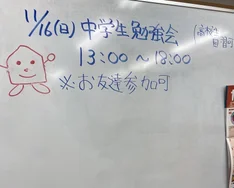 11/16(日) 中学生勉強会
13:00 ～ 18:00
※お友達参加可